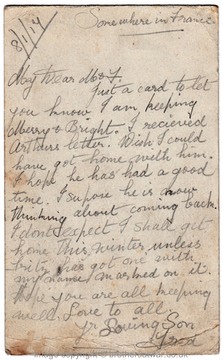 Somewhere in France
8/1/17
My Dear M & F.
Just a card to let
you know I am keeping
Merry & Bright. I recieved
Arthurs letter. Wish I could
have got home with him.
I hope he has had a good
time. I supose he is now
thinking about coming back.
I dont Expect I shall get
home this winter, unless
fritz has got one with
my name marked on it.
Hope you are all keeping
well. Love to all,
yr Loving Son